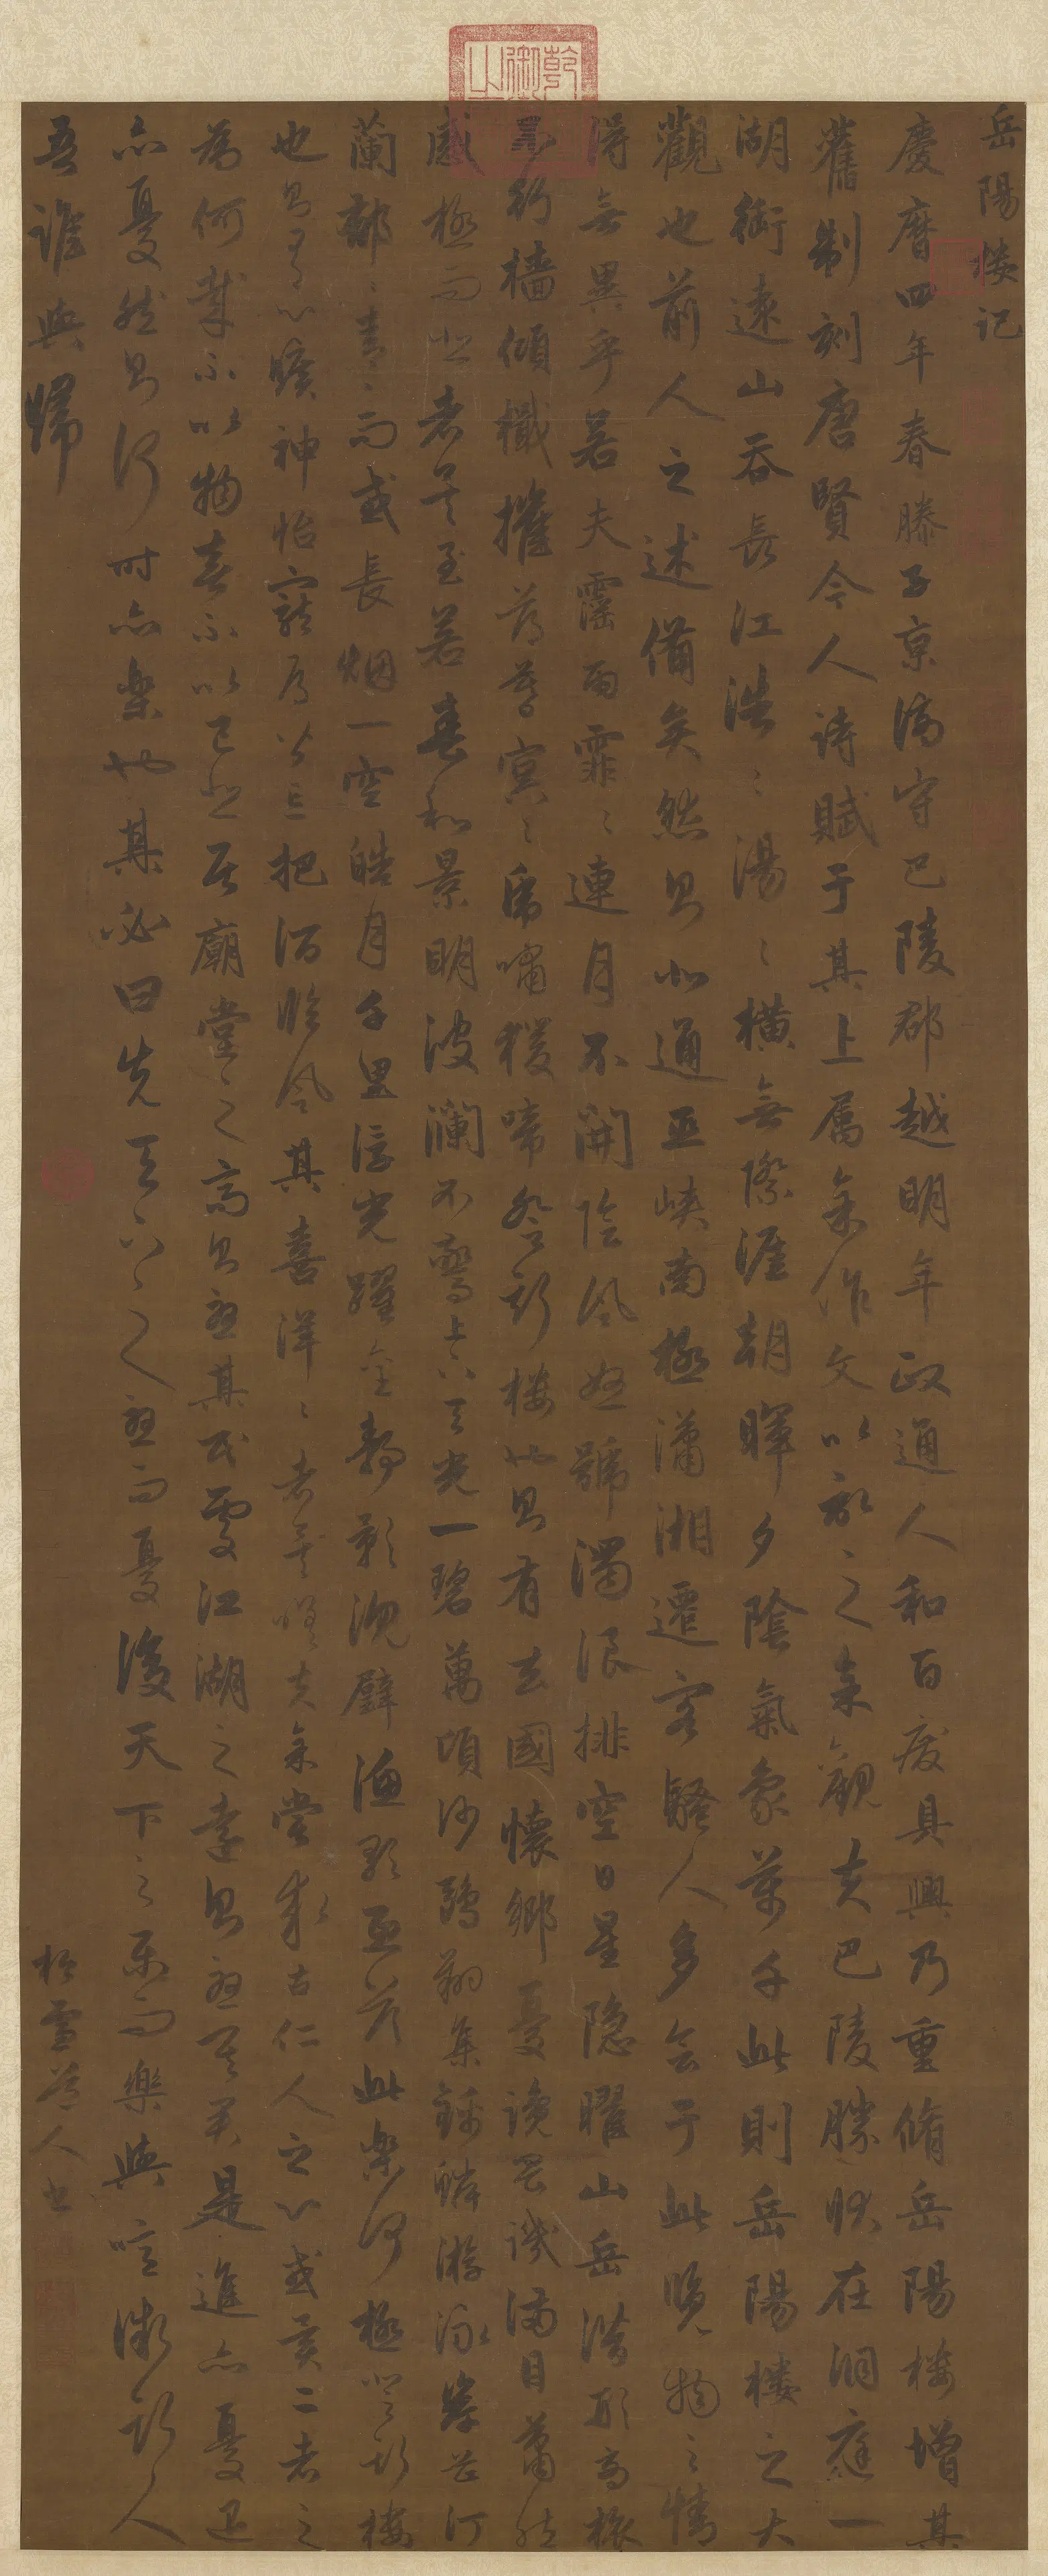 岳陽樓記
慶曆四年春滕子京謫守巴陵郡越明年政通人和百廢具興乃重脩岳陽樓增其
舊制刻唐賢今人詩賦于其上属余作文以記之余觀夫巴陵勝狀在洞庭一
湖銜遠山吞長江浩〻湯〻橫無際涯朝暉夕陰氣象萬千此則岳陽樓之大
觀也前人之述備矣然則北通巫峽南極瀟湘遷客騷人多会于此覽物之情
得無異乎若夫霪雨霏〻連月不開陰風怒號濁浪排空日星隱曜山岳潛形商旅
不行檣傾檝摧薄暮冥〻虎嘯猨啼登斯樓也則有去國懷鄉憂讒畏譏滿目蕭然
感極而悲者矣至若春和景明波瀾不驚上下天光一碧萬頃沙鷗翔集錦鱗游泳岸芷汀
蘭郁〻青〻而或長烟一空皓月千里浮光躍金靜影沉璧漁歌互答此樂何極登斯樓
也則有心曠神怡寵辱皆忘把酒臨風其喜洋〻者矣嗟夫余嘗求古仁人之心或異二者之
為何哉不以物喜不以己悲居廟堂之高則憂其民處江湖之遠則憂其君是進亦憂退
亦憂然則何時亦樂也其必曰先天下之憂而憂後天下之樂而樂與噫微斯人
吾誰與歸
松雪道人書